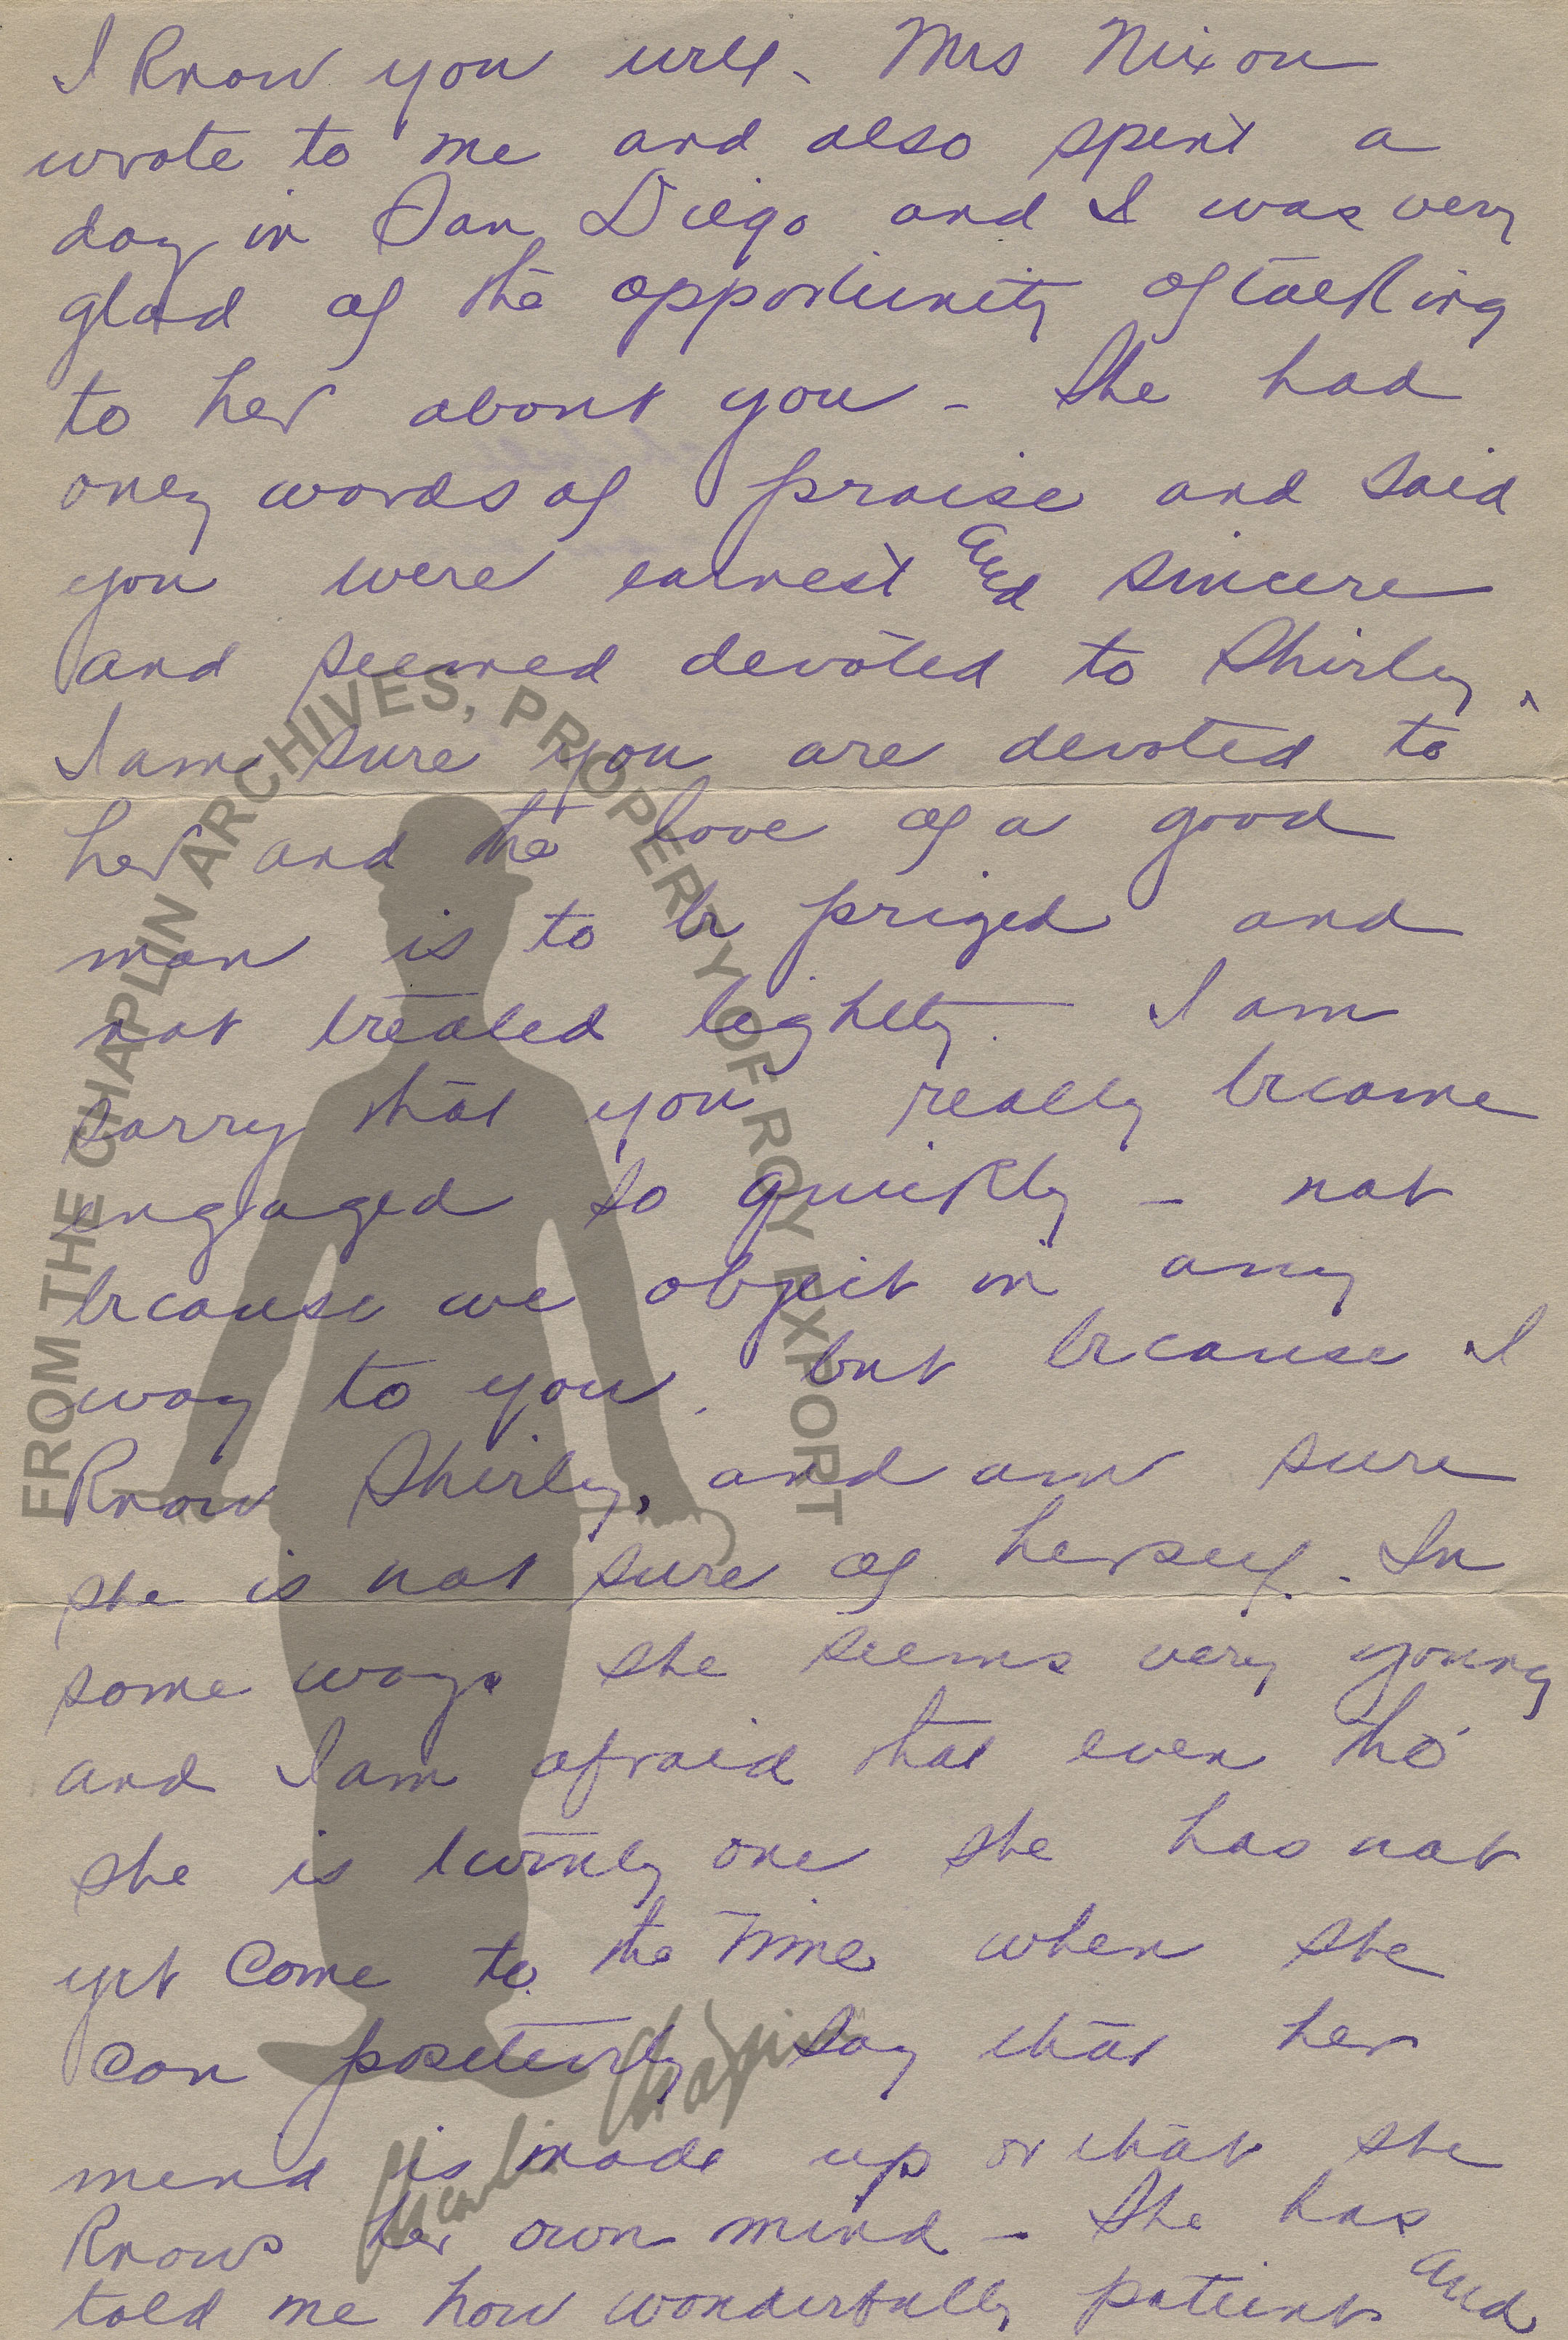 I know you well. Mrs Nixon
wrote to me and also spent a
day in San Diego and I was very
glad of the opportunity of talking
to her about you - She had
only words of praise and said
you were earnest and sincere
and seemed devoted to Shirley.
I am sure you are devoted to
her and the love of a good
man is to be prized and
not treated lightly - I am
sorry that you really became
engaged so quickly - not
because we object in any
way to you, but because I
know Shirley, and am sure
she is not sure of herself. In
some ways she seems very young
and I am afraid that even tho'
she is twenty one she has not
yet come to the time when she
can positively say that her
mind is made up or that she
knows her own mind - She has
told me how wonderfully patient and
FROM THE CHAPLIN ARCHIVES, PROPERTY OF ROY EXPORT
Charlie Chaplin